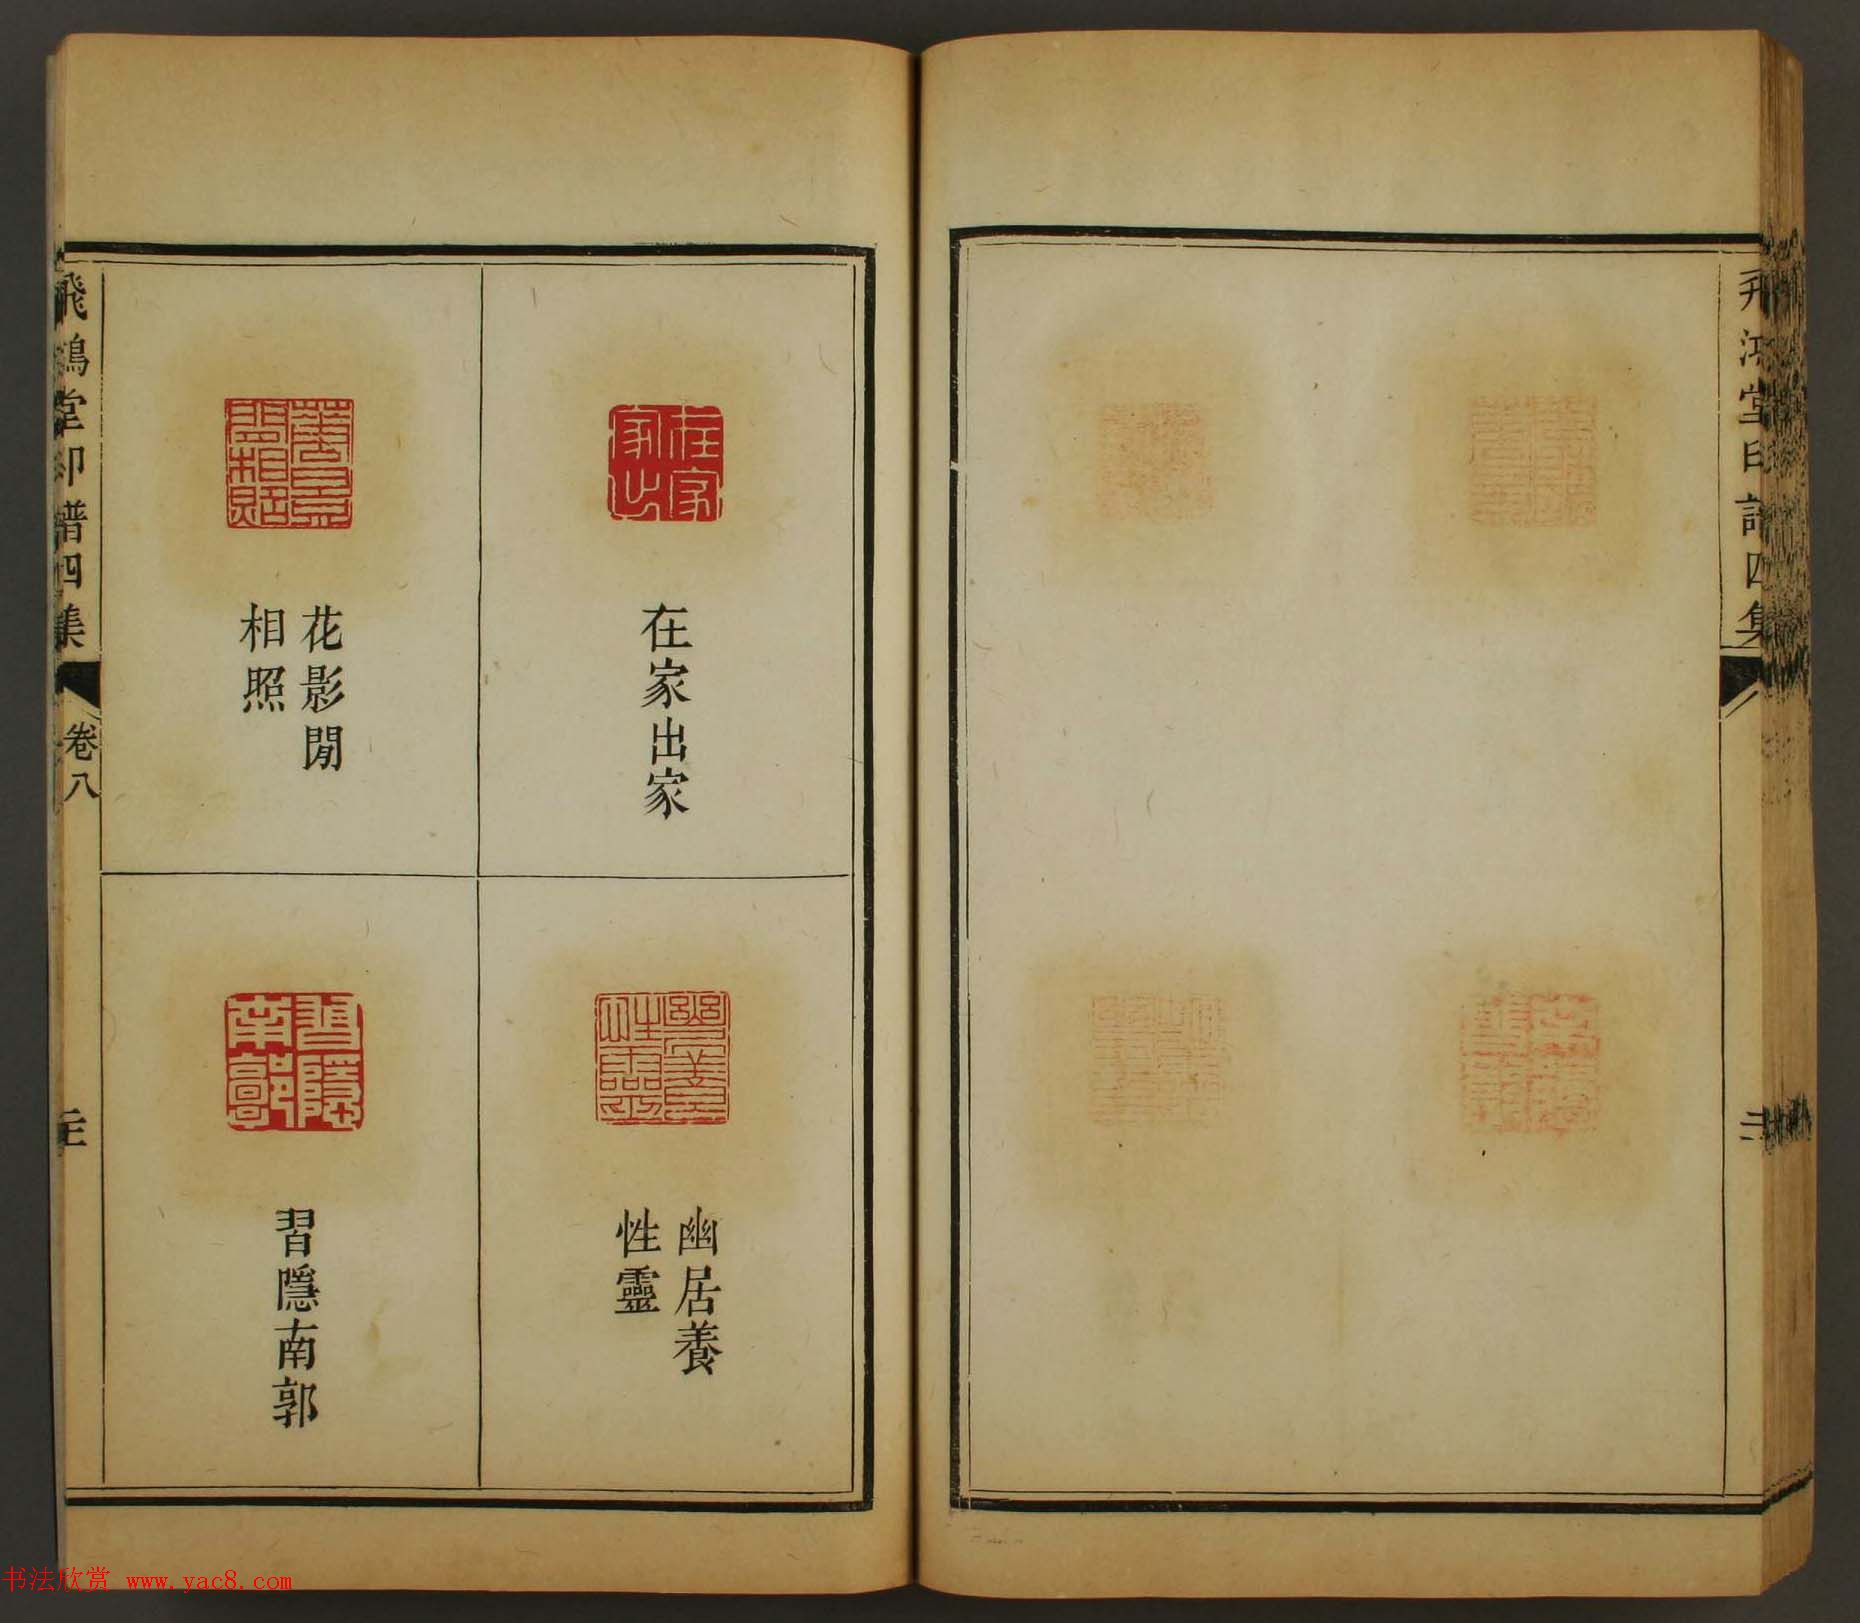 飛鴻堂印譜四集
在家出家
花影閒
相照
幽居養
性靈
習隱南郭
飛鴻堂印譜四集
卷八
书法欣赏 www.yac8.com